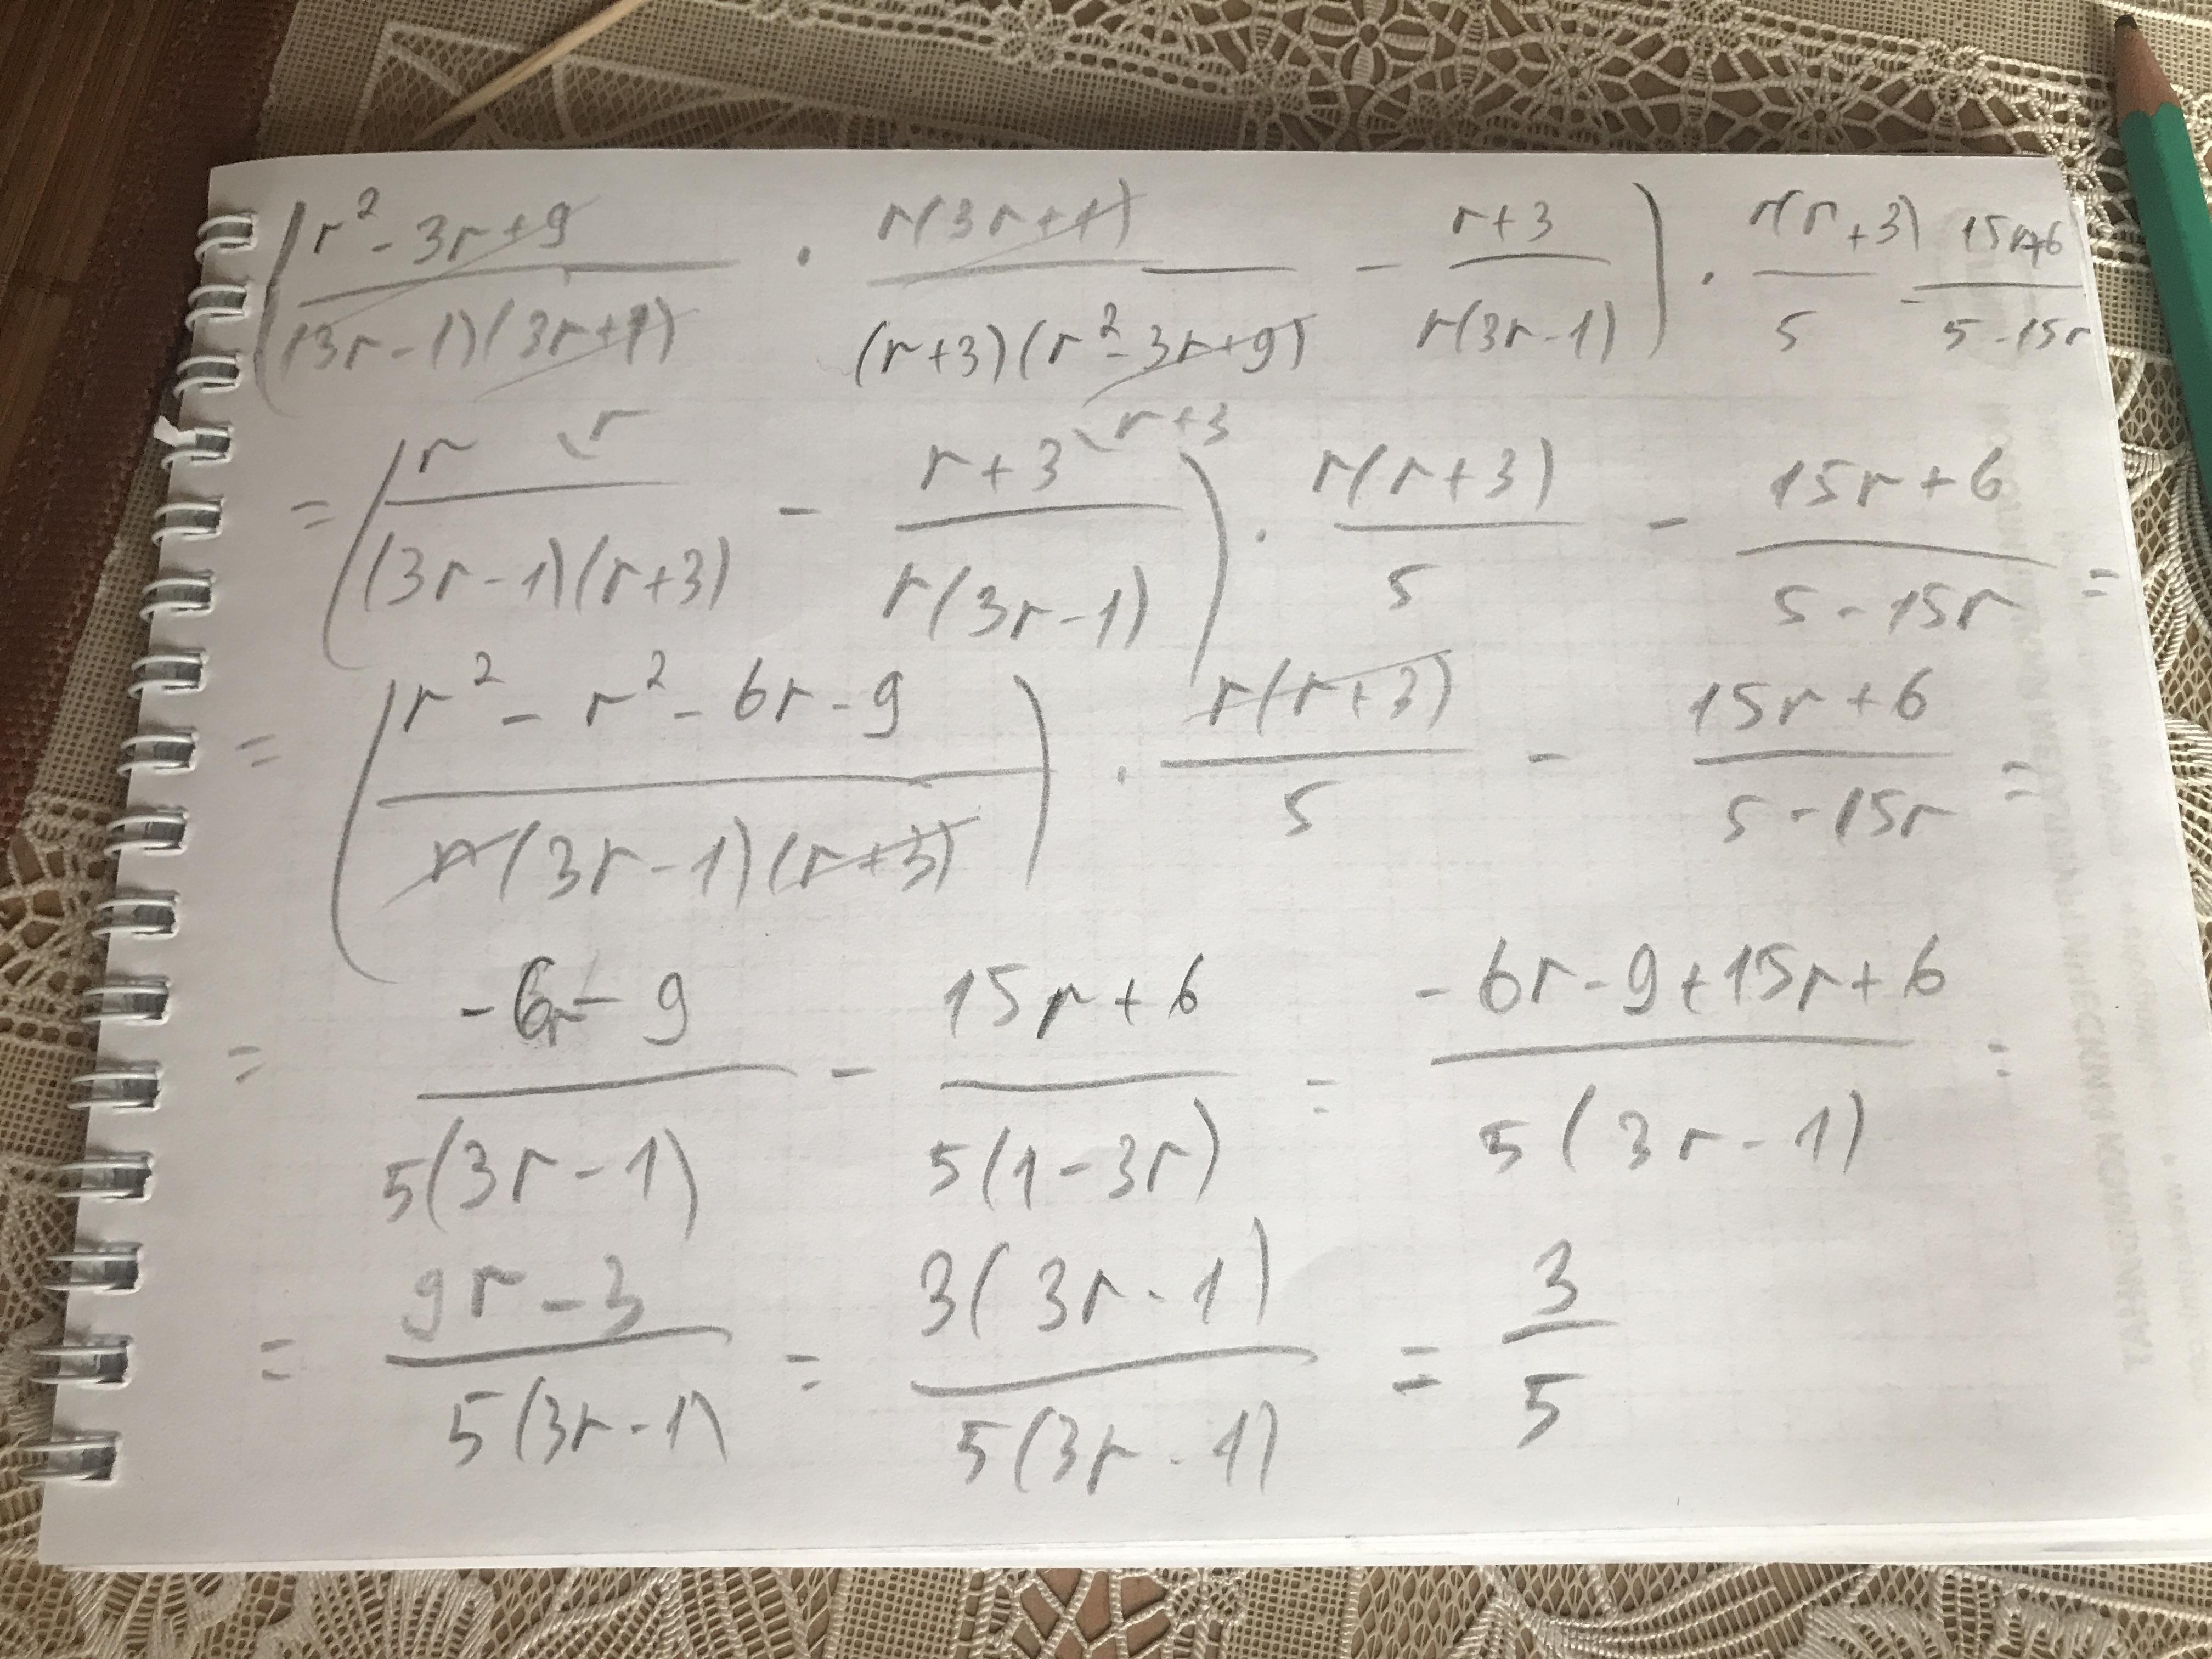 ( (r² - 3r + 9) / ((3r - 1)(3r + 1)) · r(3r + 1) / ((r + 3)(r² - 3r + 9)) - (r + 3) / (r(3r - 1)) ) · r(r + 3) / 5 - (15r + 6) / (5 - 15r)
= ( r \r / ((3r - 1)(r + 3)) - (r + 3) \r + 3 / (r(3r - 1)) ) · r(r + 3) / 5 - (15r + 6) / (5 - 15r) =
= ( (r² - r² - 6r - 9) / (r(3r - 1)(r + 3)) ) · r(r + 3) / 5 - (15r + 6) / (5 - 15r) =
= (-6r - 9) / (5(3r - 1)) - (15r + 6) / (5(1 - 3r)) = (-6r - 9 + 15r + 6) / (5(3r - 1)) =
= (9r - 3) / (5(3r - 1)) = 3(3r - 1) / (5(3r - 1)) = 3 / 5